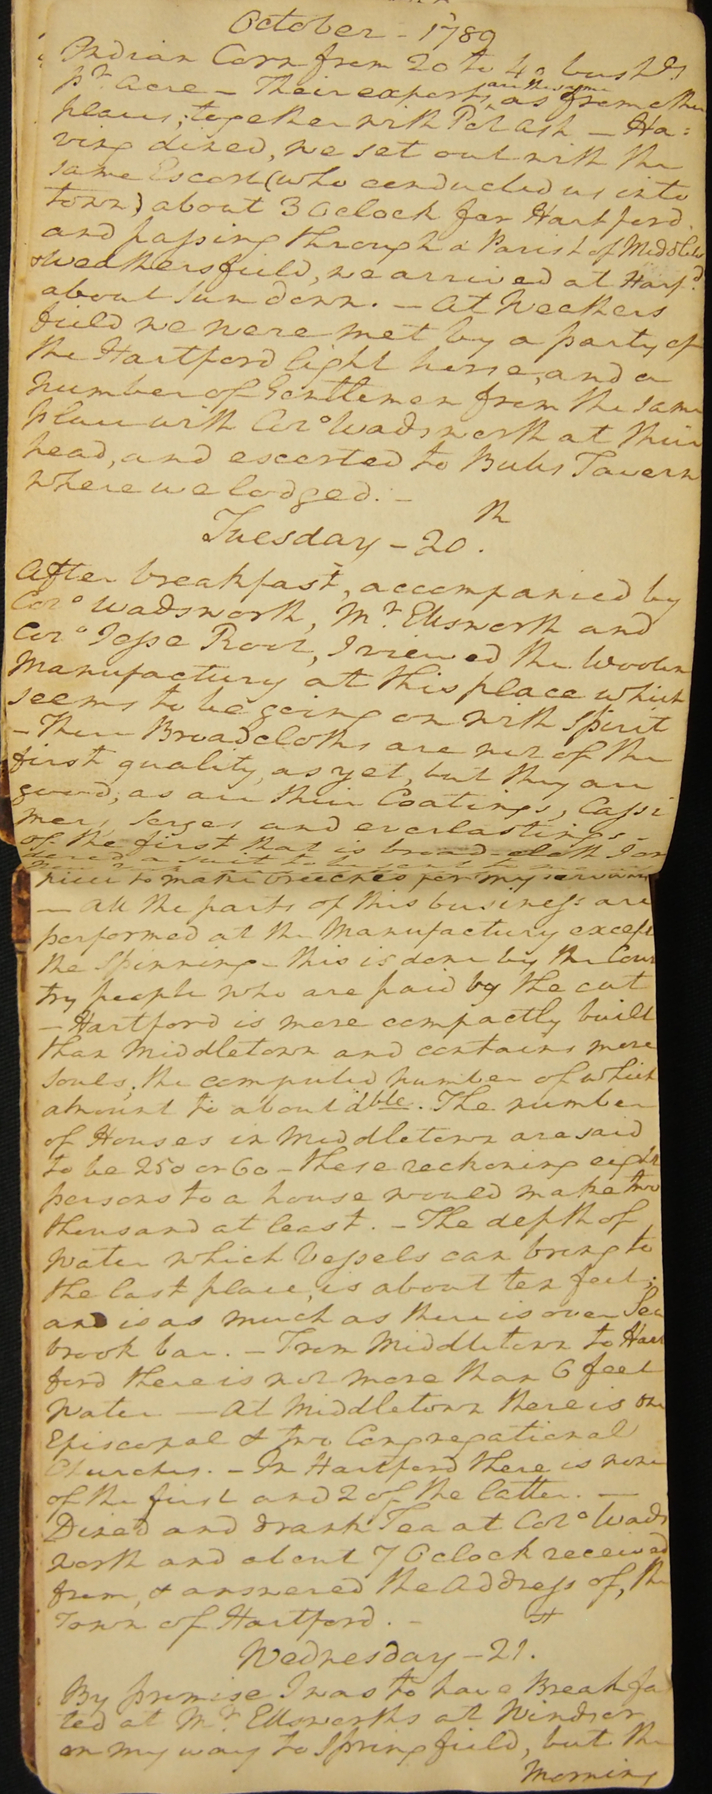 October - 1789
Indian Corn from 20 to 40 bushls
pr Acre - Their exports are the same as from other
places; together with Pot ash - Ha=
ving dined, we set out with the
same Escort (who conducted us into
town) about 3 Oclock for Hartford.
and passing through a Parish of Middletd
& Weathersfield, we arrived at Harfd
about Sundown. - At Weathers
field we were met by a party of
the Hartford light horse, and a
number of Gentlemen from the same
place with Colo Wadsworth at their
head, and escorted to Bulls Tavern
where we lodged. -
Tuesday - 20th.
After breakfast, accompanied by
Colo Wadsworth, Mr. Ellsworth and
Colo Jesse Root, I viewed the Woolen
Manufactury at this place which
seems to be going on with spirit
- Their Broadcloths are not of the
first quality, as yet, but they are
good; as are their Coatings, Cassi
mers, serges and everlastings -
of the first that is broad-cloth I or
dered a suit to be sent to
piece to make breeches for my servants
- All the parts of this business are
performed at the Manufactury except
the Spinning - this is done by the Coun
try people who are paid by the cut
- Hartford is more compactly built
than Middletown and contains more
Souls; the computed number of which
amount to about dble. The number
of Houses in Middletown are said
to be 250 or 60 - these reckoning eight
persons to a house would make two
thousand at least. - The depth of
Water which Vessels can bring to
the last place, is about ten feet;
and is as much as there is over Sea
brook bar. - From Middletown to Hart
ford there is not more than 6 feet
Water - At Middletown there is one
Episcopal & two Congregational
Churches. - In Hartford there is none
of the first and 2 of the latter. -
Dined and drank Tea at Colo Wads
worth and about 7 Oclock received
from, & answered the Address of, the
Town of Hartford. -
Wednesday - 21st.
By promise I was to have Breakfas
ted at Mr. Ellsworths at Windsor
on my way to Springfield, but the
Morning